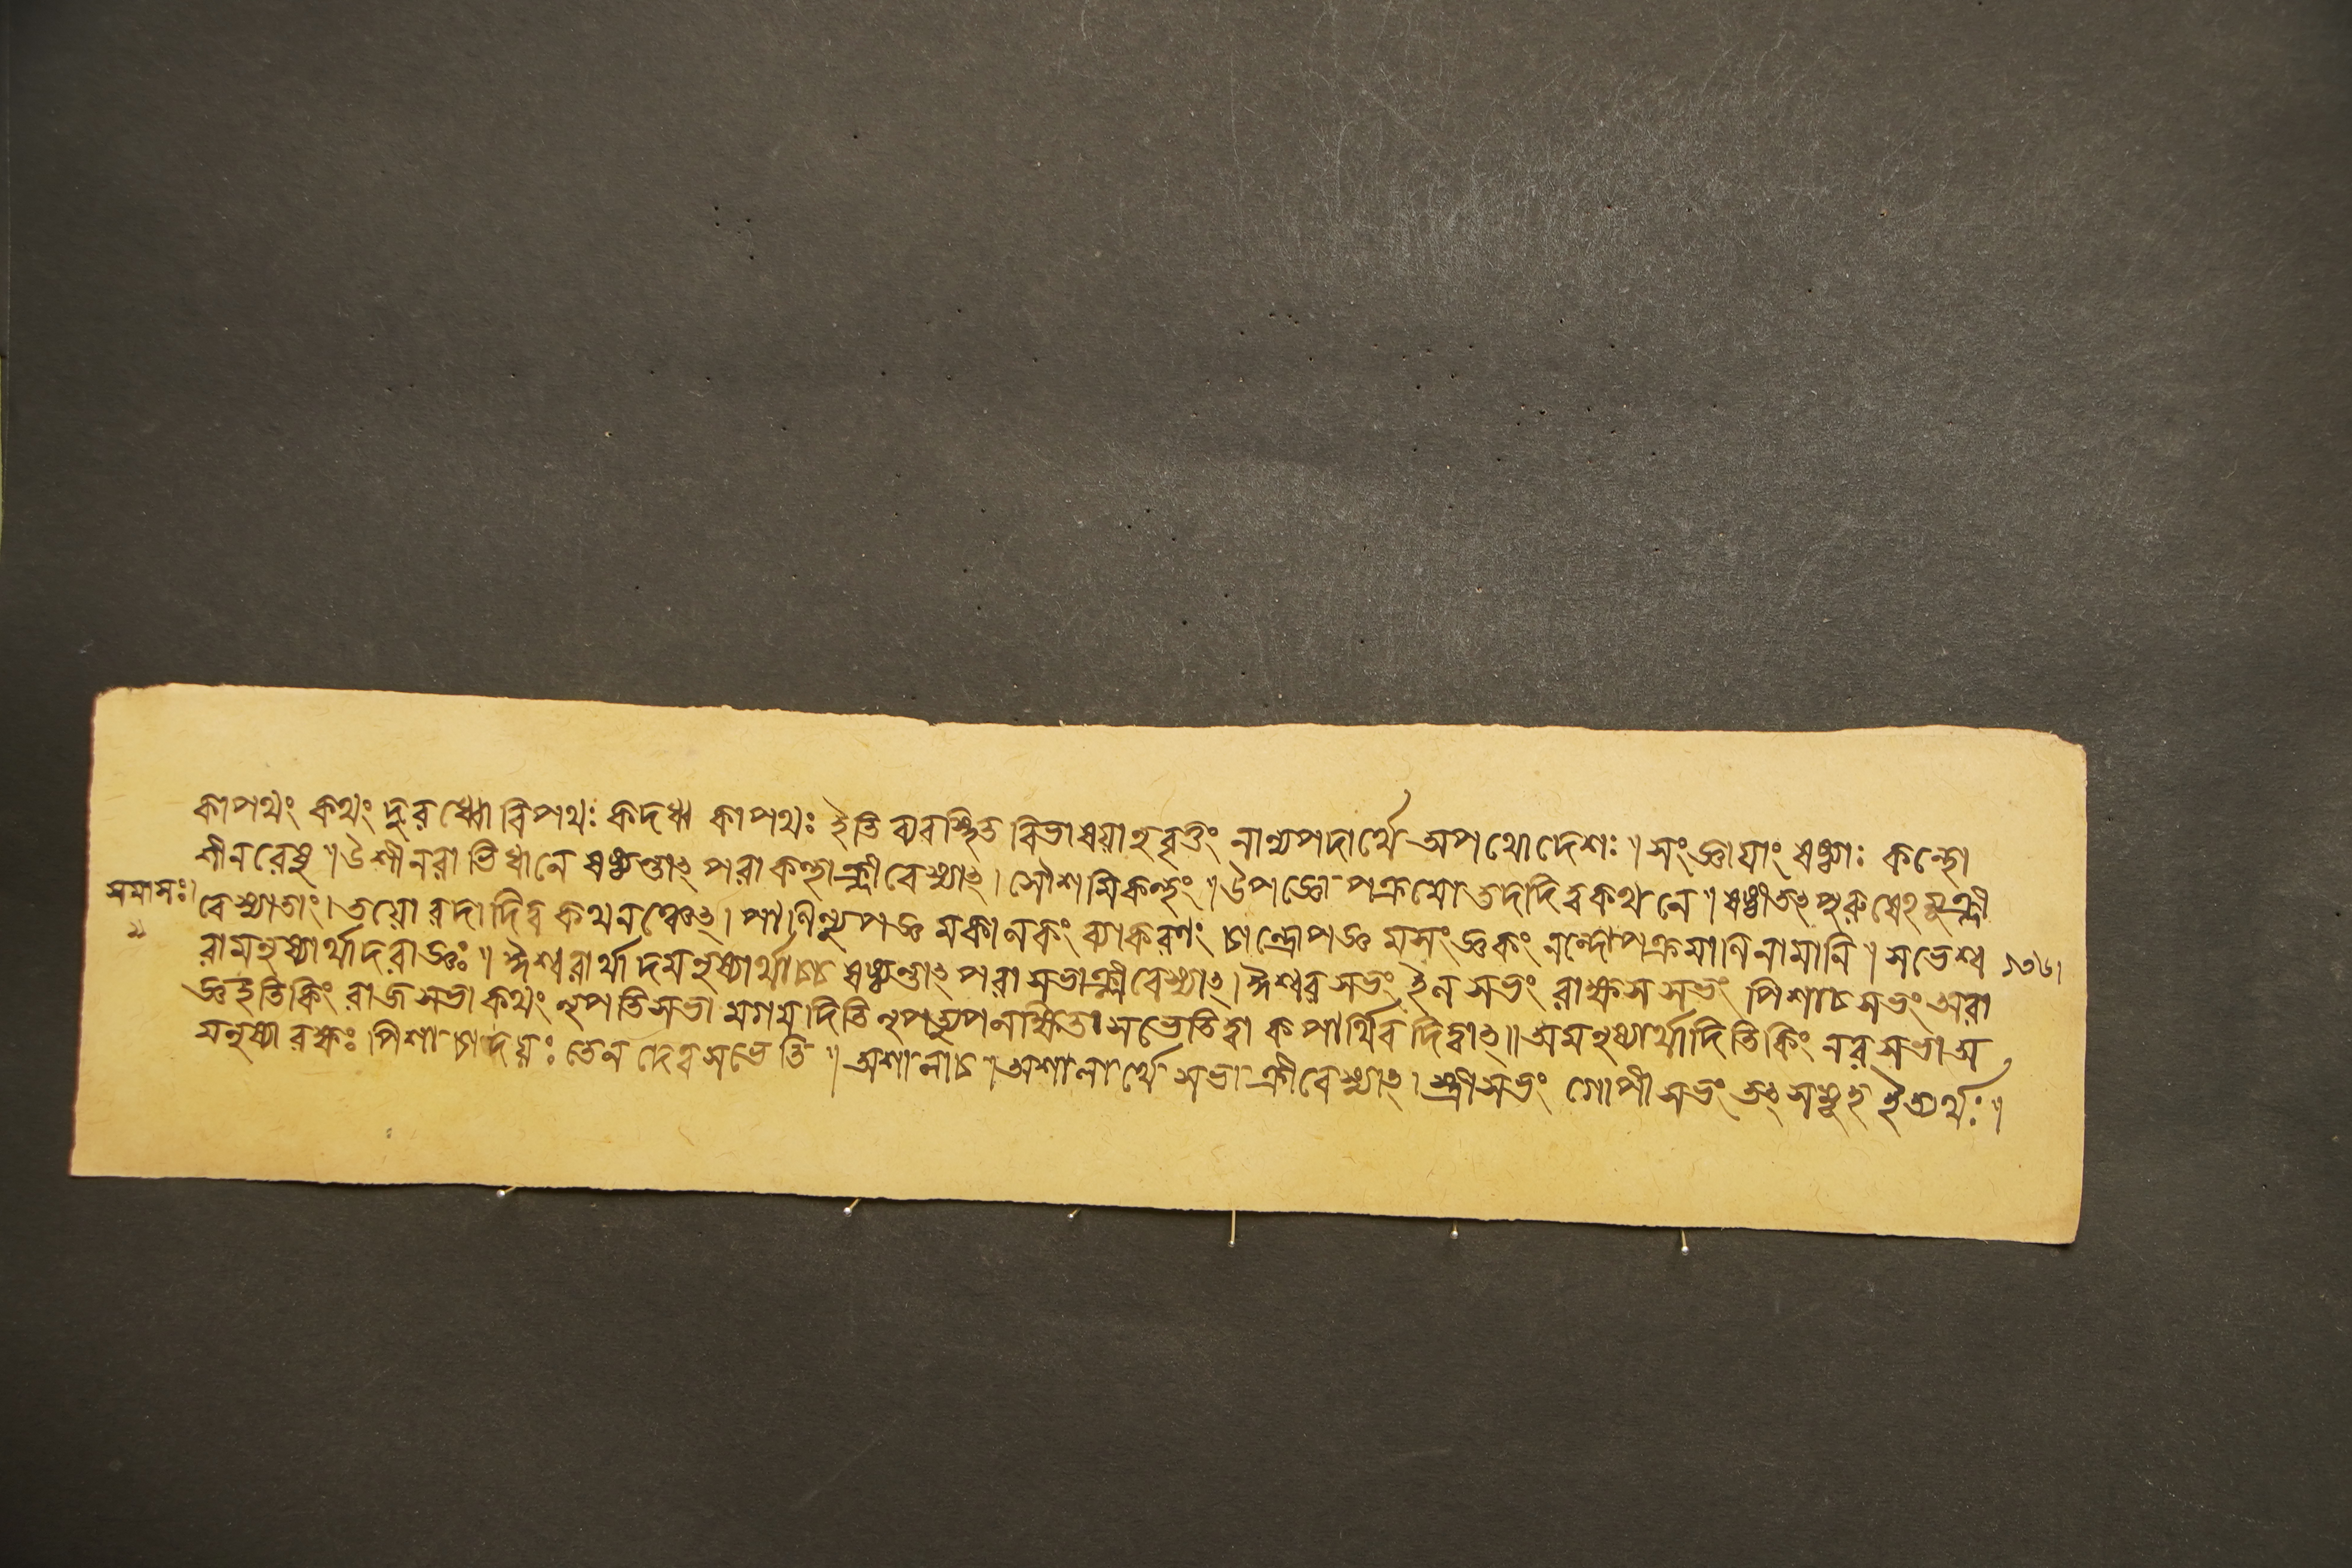 কাপথং কথং দুরধ্বো বিপথঃ কদধ্ব কাপথঃ ইতি ব্যবস্থিত বিভাষয়ানুবৃত্তং নান্যপদার্থে অপথোদেশঃ ॥ সংজ্ঞায়াং ষষ্ঠ্যাঃ কন্থো
শীনরেষু ॥ উশীনরাভিধানে ষষ্ঠ্যন্তাৎ পরা কন্থা ক্লীবেস্যাৎ । সৌশমিকন্থং ॥ উপজ্ঞো পক্রমো তদাদিত্বকথনে ॥ ষষ্ঠ্যাঁতৎপুরুষেঽমু ক্লী
সমাসঃ।
বেস্যাতাং । তয়োরাদাদিত্ব কথনঞ্চেৎ । পাণিন্যুপজ্ঞমকালকং ব্যাকরণং চান্দ্রোপজ্ঞমসংজ্ঞকং নন্দোপক্রমাণিনামানি ॥ সভেশ্ব
১৩৬।
রামনুষ্যার্থাদরাজ্ঞঃ ॥ ঈশ্বরার্থাদমনুষ্যার্থাচ্চ ষষ্ঠ্যন্তাৎ পরা সভা ক্লীবেস্যাৎ । ঈশ্বর সভং ইন সভং রাক্ষস সভং পিশাচ সভং অরা
জ্ঞইতিকিং রাজসভা কথং নৃপতিসভা মগমদিতি নৃপত্যুপলক্ষিতা সভেতিত্বা কপার্থিবাদিত্বাৎ ॥ অমনুষ্যার্থাদিতিকিং নরসভা অ
মনুষ্যা রক্ষঃ পিশাচাদয়ঃ তেন দেবসভেতি ॥ অশালাচ ॥ অশালার্থে সভা ক্লীবেস্যাৎ । স্ত্রীসভং গোপীসভং তৎসমূহ ইত্যর্থঃ ॥